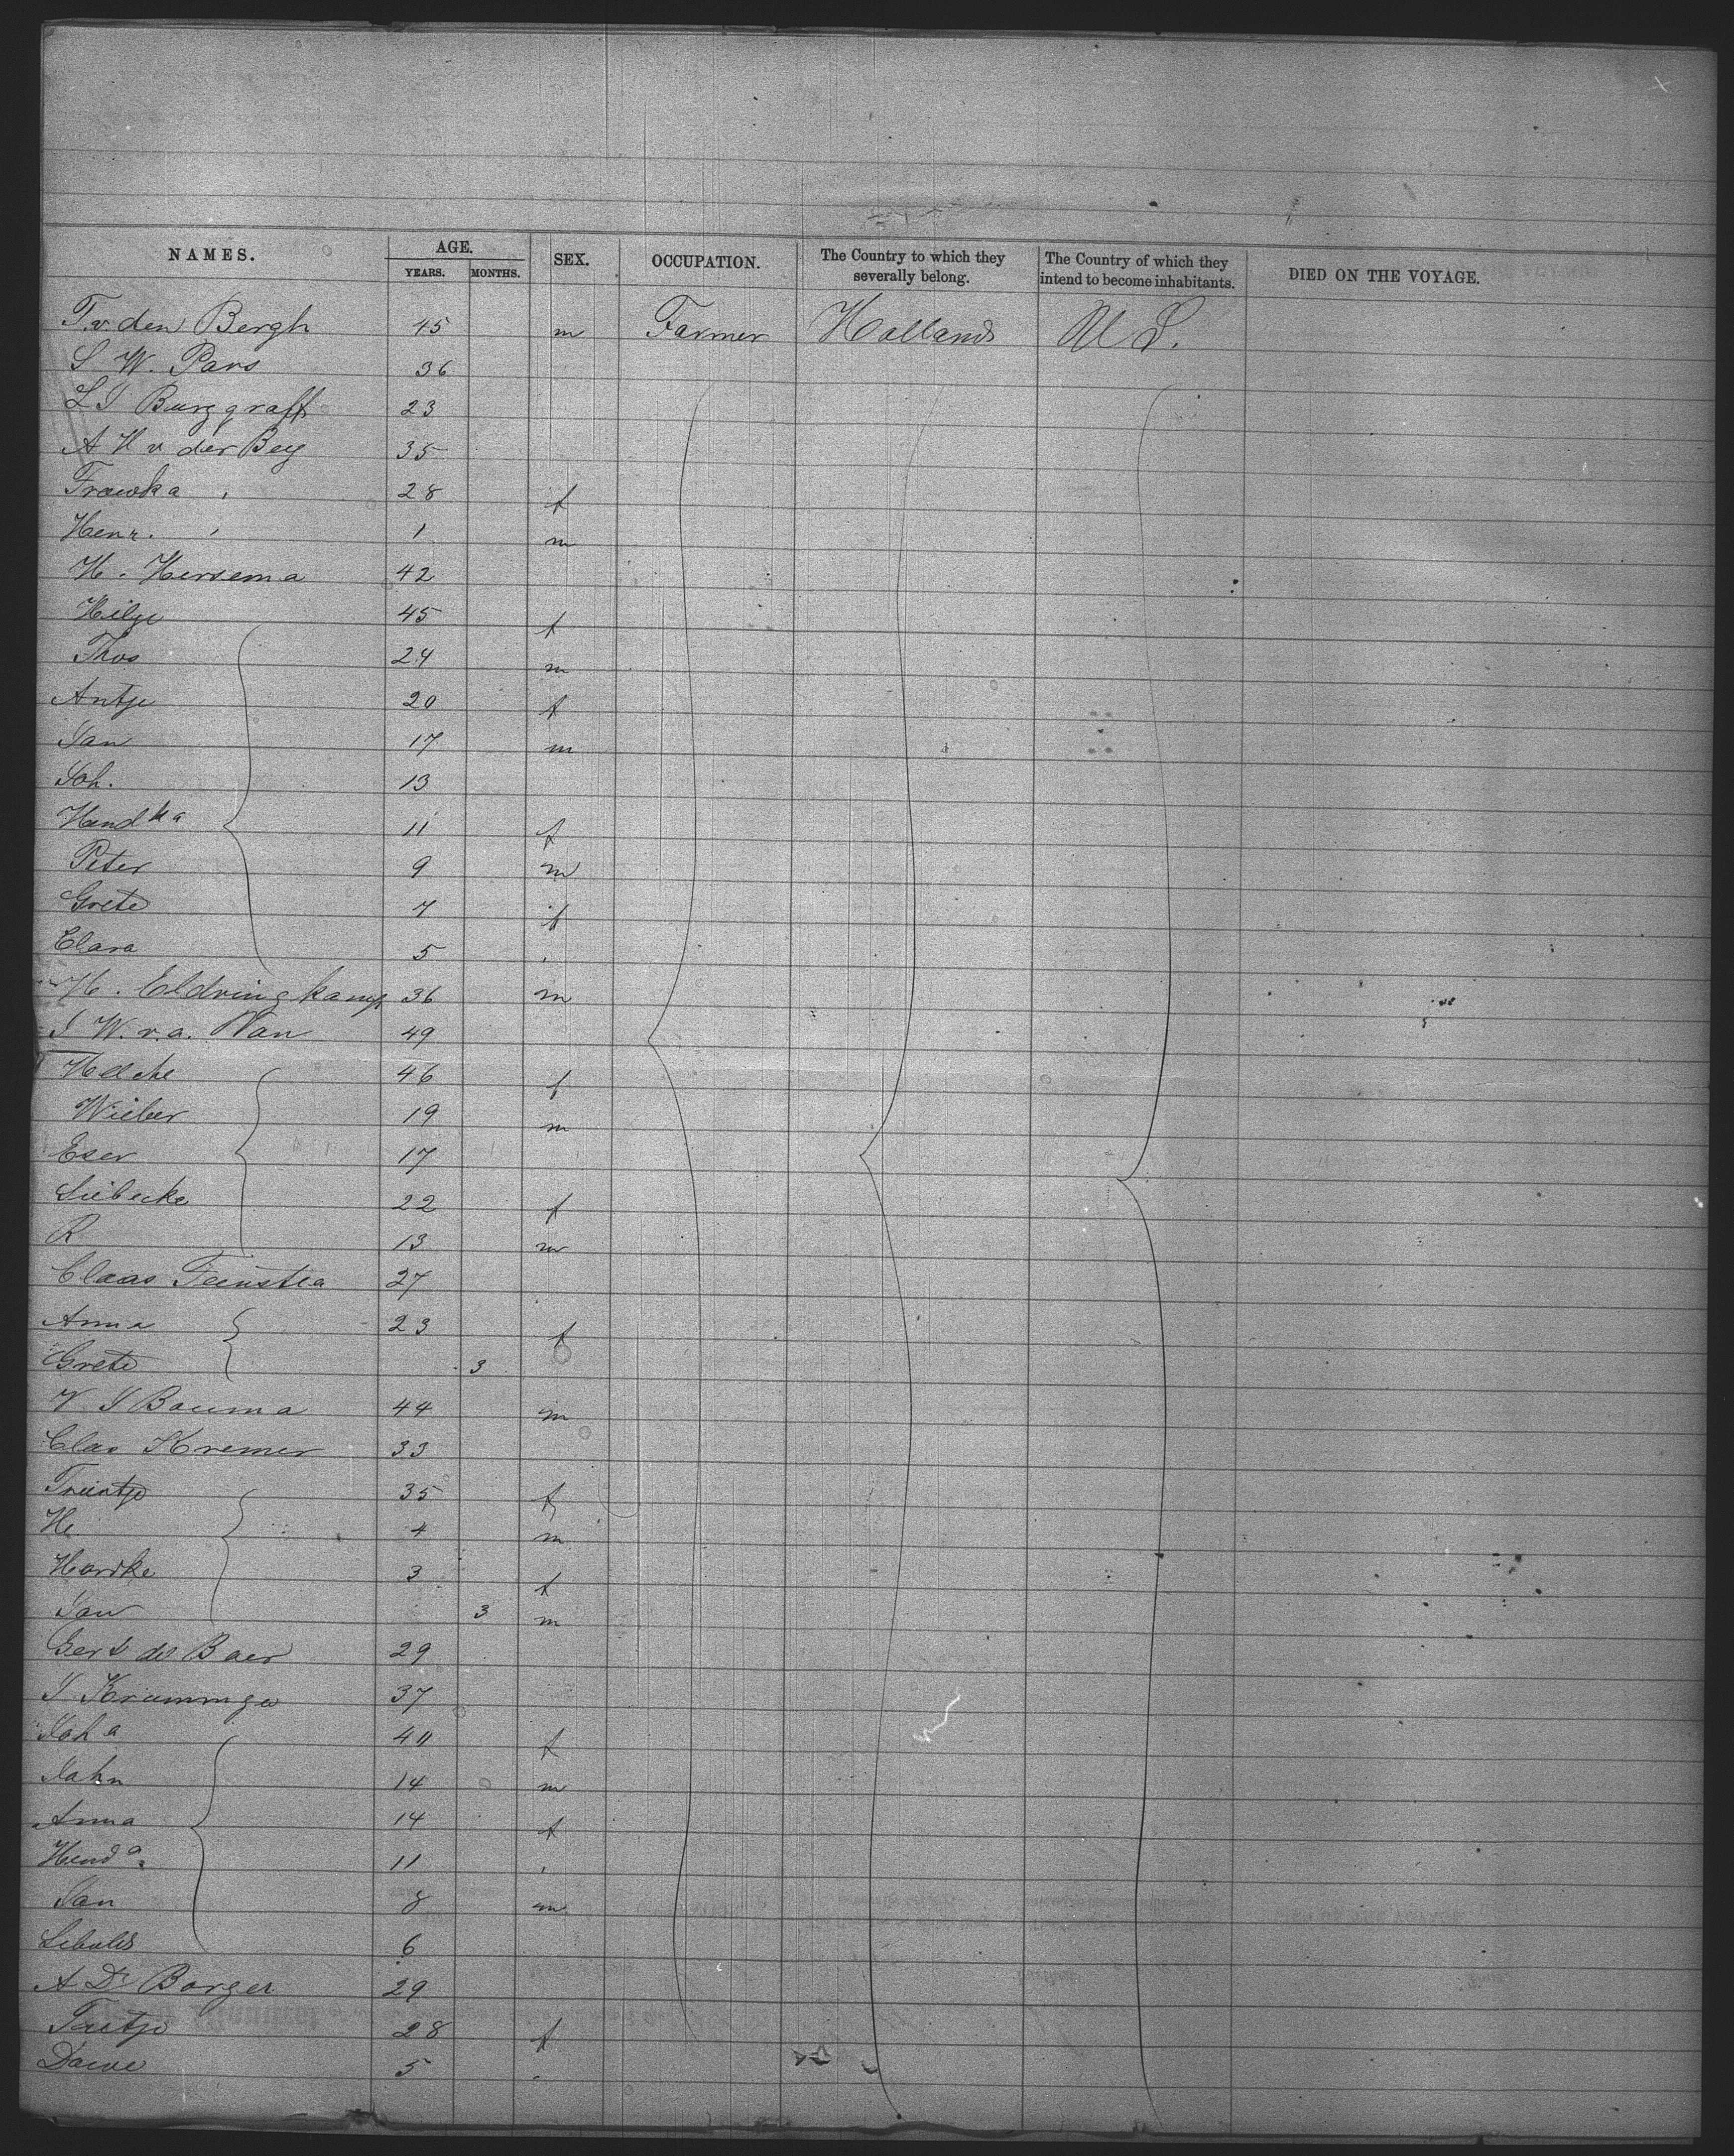 NAMES. AGE. YEARS. MONTHS. SEX. OCCUPATION. The Country to which they severally belong. The Country of which they intend to become inhabitants. DIED ON THE VOYAGE.
T. v. den Bergh 45 m Farmer Holland U S.
S W. Pars 36
L J Burggraff 23
A H v der Beg 35
Frawka " 28 f
Henr. " 1 m
H. Hersema 42
Hilge 45 f
Thos 24 m
Antje 20 f
Jan 17 m
Joh. 13
Hendka 11 f
Peter 9 m
Grete 7 f
Clara 5 "
H. Eldringkamp 36 m
J W. v. a. Wan 49
Helche 46 f
Wieber 19 m
Eser 17
Liebecke 22 f
R 13 m
Claas Teenstra 27
Anna 23 f
Grete 3
V J Bouma 44 m
Clas Kremer 33
Trientje 35 f
H. 4 m
Harike 3 f
Jan 3 m
Gert de Baer 29
J Kramminga 37
Joha 40 f
Jahn 14 m
Anna 14 f
Henda. 11 "
Jan 8 m
6
A Dr Borger 29
Tietje 28 f
5 "